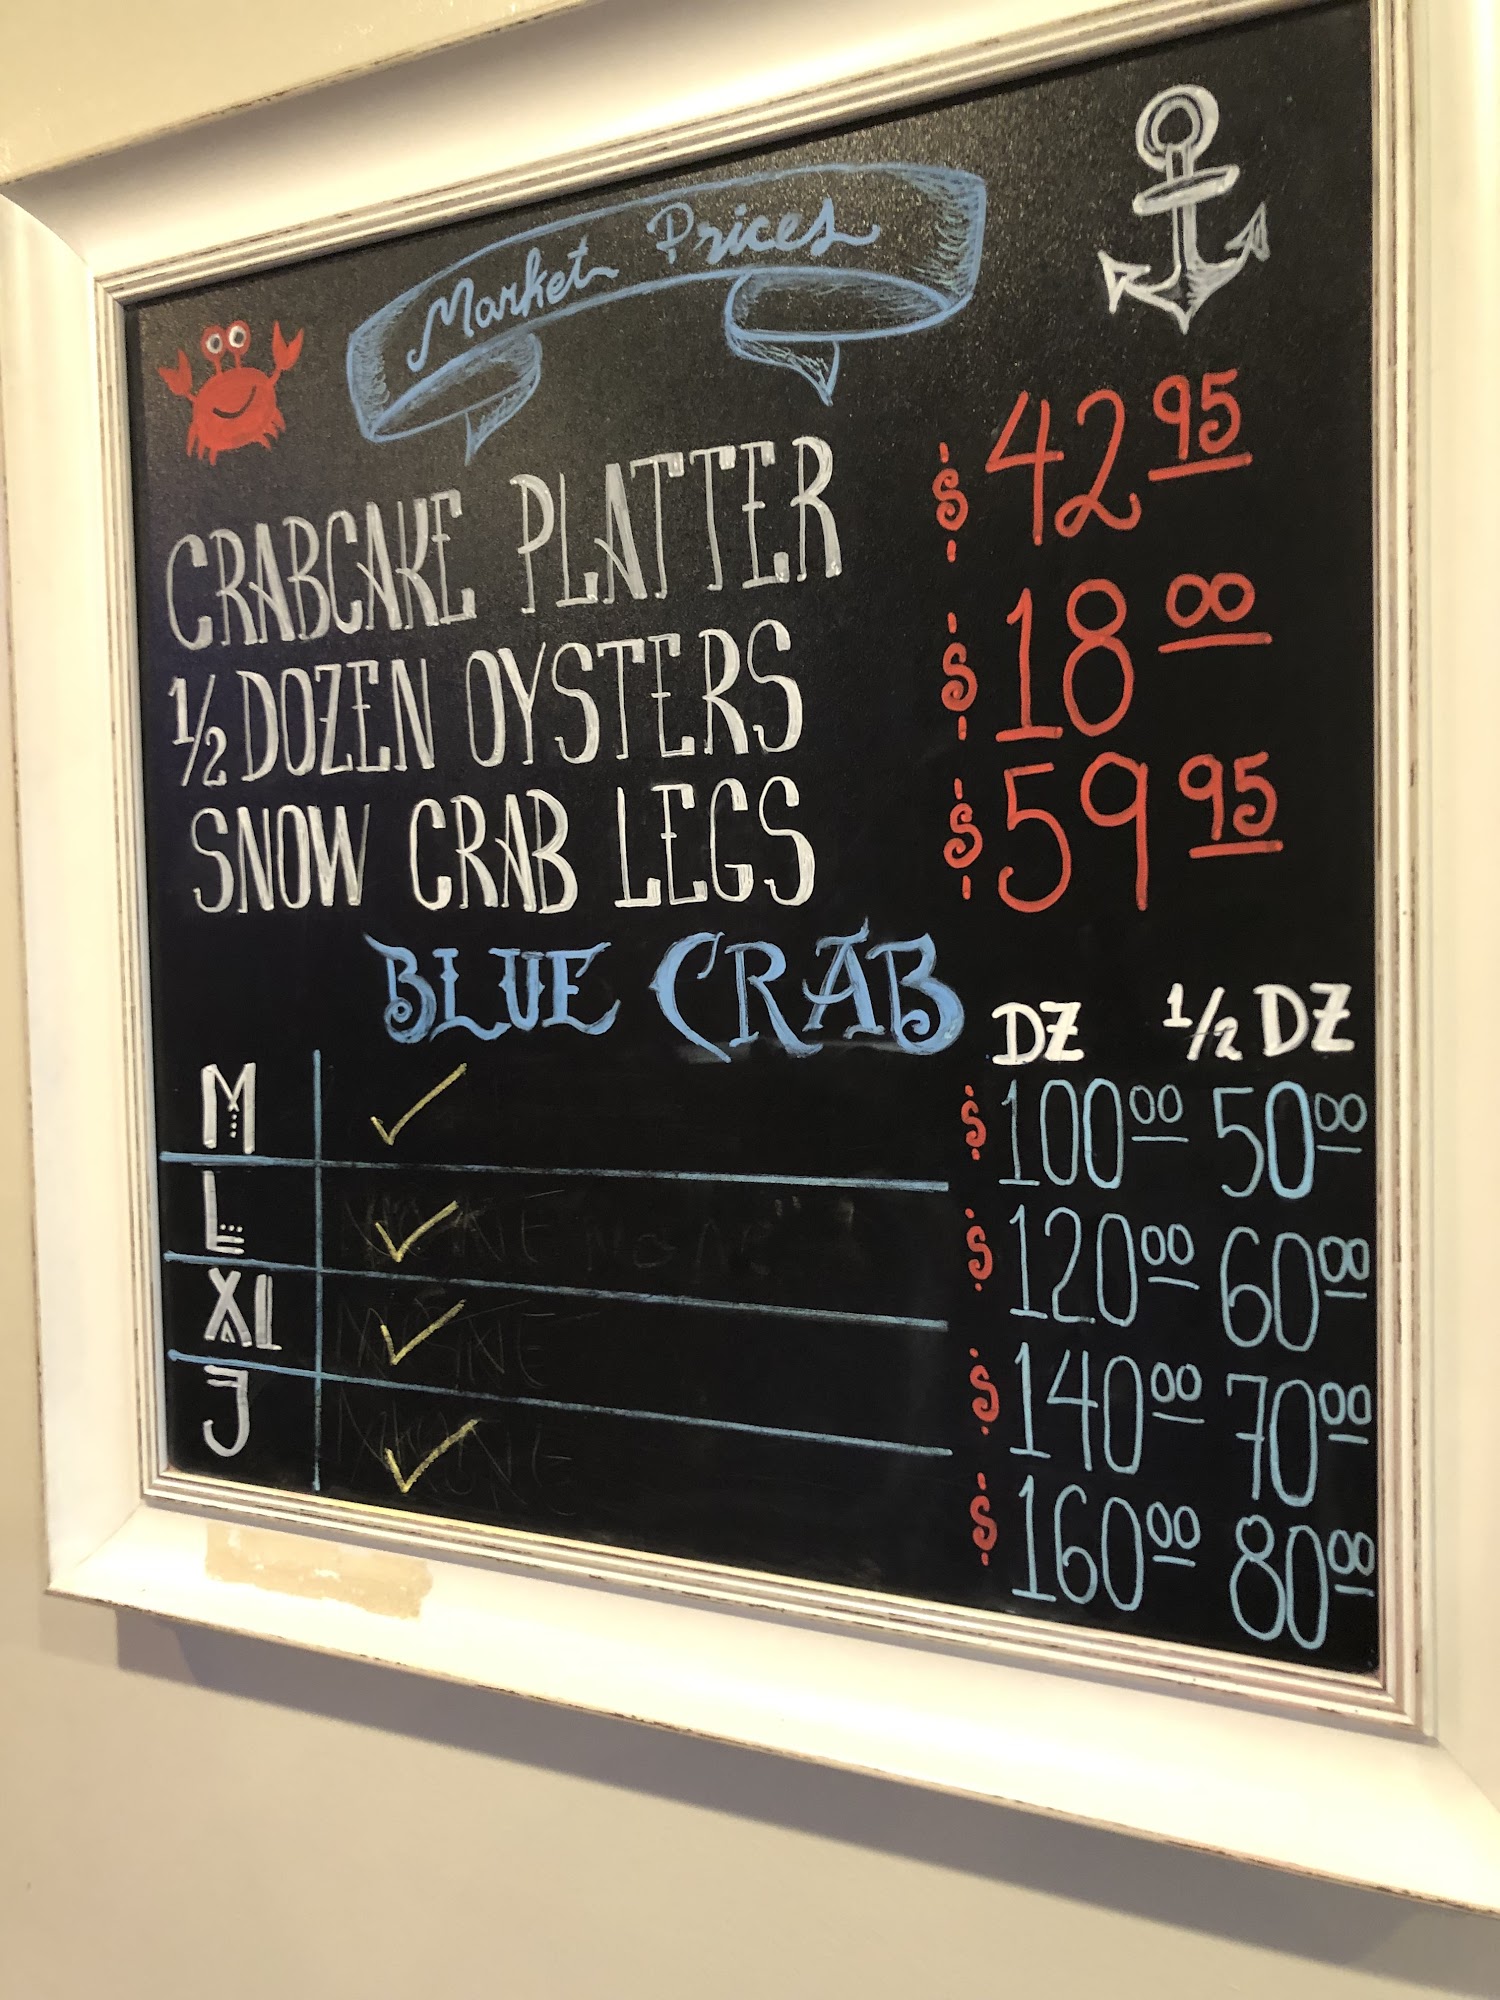 Market Prices
CRABCAKE PLATTER $42.95
1/2 DOZEN OYSTERS $18.00
SNOW CRAB LEGS $59.95
BLUE CRAB DZ 1/2 DZ
M ✓ $100.00 50.00
L ✓ $120.00 60.00
XL ✓ $140.00 70.00
J ✓ $160.00 80.00